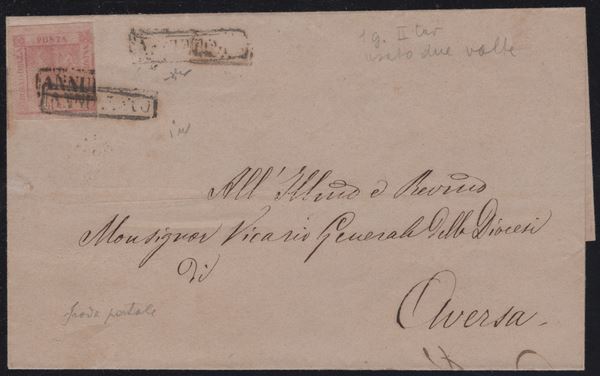 POSTA
ANNULLATO
1 g. II tav
usato due volte
ANNUL
All' Illmo e Revmo
Monsignor Vicario Generale della Diocesi
di
Aversa.
frode postale